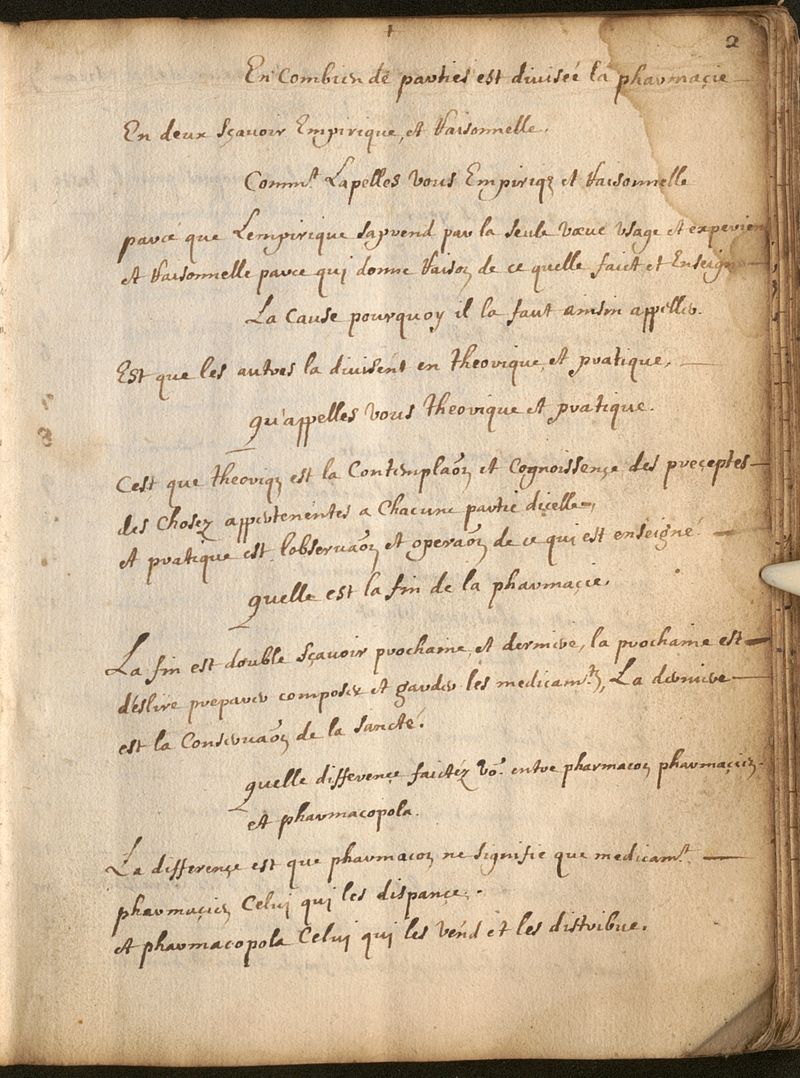 2
En Combien de parties est diviseé la pharmaçie
En deux sçavoir Empirique, et Raisonnelle.
Comm.t Lapelles vous Empiriq et Raisonnelle
parce que Lempirique saprend par la seule vœue vsage et experien
et Raisonnelle parce qui donne Raison de ce quelle faict et Enseigne
La Cause pourquoy il la faut ainsin appeller.
Est que les autres la divisent en theorique, et pratique.
qu'appelles vous theorique et pratique.
Cest que theoriq est la Contemplaõn et Cognoissençe des preçeptes
des Chosez appertenentes a Chacune partie dicelle,
et pratique est lobseruaõn et operaõn de ce qui est enseigné
quelle est la fin de la pharmaçie.
La fin est double sçavoir prochaine, et derniere, la prochaine est
deslire preparer composer et garder les medicam.ts, La derniere
est la Conseruaõn de la sancté.
quelle differençe faictéz vo.s entre pharmacon pharmaçien
et pharmacopola.
La differençe est que pharmacon ne signifie que medicam.t
pharmaçien Celui qui les dispançe.
et pharmacopola Celui qui les vend et les distribue.